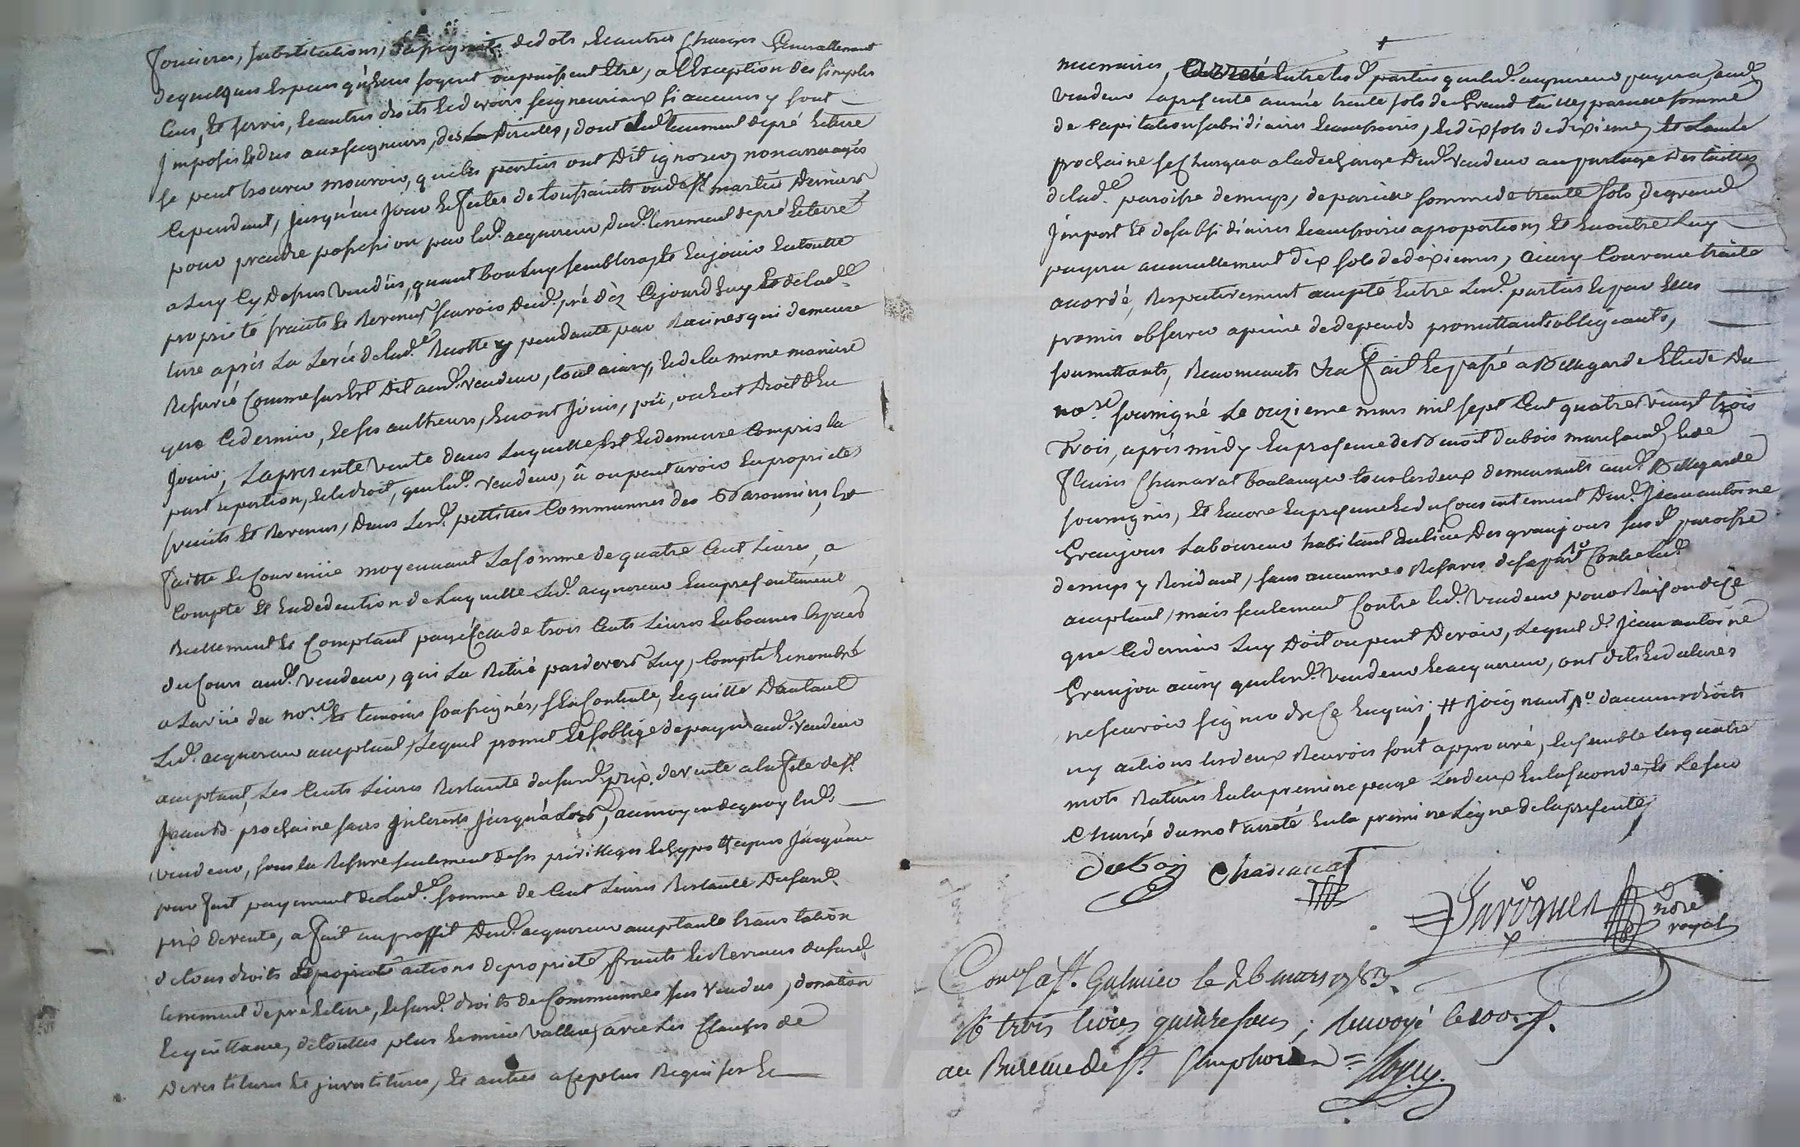 foncieres, substitutions, de dots, & autres charges Generallement
de quelques Especes quelles soyent ou puissent Etre, a l'Exception des simples
Cens, Et servis, & autres droits & devoirs seigneuriaux si aucuns y sont
Imposés & dus aux seigneurs, des directes, dont led. tenement de pré & terre
se peut trouver mouvoir, que les parties ont dit ignorer, non arreragés
Cependant, jusqu'au jour & fetes de toussaints ou de st. martin dernier
pour prendre possession par led. acquereur dud. tenement de pré & terre
a luy Cy dessus vendus, quant bon luy semblera, & En jouir En toutte
proprieté fruits & Revenus, scavoir dud. pré dez Cejourd'huy & de lad.
terre aprés La Levée de lad. Recolte y pendante par Racines qui demeure
Reservée Comme sus Est Dit aud. vendeur, tout ainsy, & de la meme maniere
que Ce dernier, & ses autheurs, En ont joüis, pû, ou Eut Droit d'En
Jouir, La presente vente dans Laquelle Est & demeure Compris la
part & portion, & le droit, que led. vendeur, â ou peut avoir En proprieté
fruits Et Revenus, Dans Lesd. pettittes Communes des
faitte & Convenüe moyennant La somme de quatre Cent Livres, a
Compte Et En deduction de Laquelle Led. acquereur En a presentement
Reellement & Comptant payé celle de trois Cents Livres En bonnes Especes
du Cours aud. vendeur, qui La Retiré pardevers Luy, Compté & nombré
a La vüe du nore. & temoins soussignés, s'En Contente, & quitte D'autant
Led. acquereur acceptant, Lequel promet & s'oblige de payer aud. vendeur
acceptant, Les Cents Livres Restante du susd. prix de vente a la fete de st.
Jean Bte. prochaine sans Interests jusqu'à Lors, au moyen de quoy led.
vendeur, sous la Reserve seulement de ses privilleges & hypotteques jusqu'au
parfait payement de Lad. somme de Cent Livres Restante du susd.
prix de vente, a fait au proffit Dud. acquereur acceptant translation
de tous droits actions de proprieté, fruits & Revenus du susd.
tenement de pré & terre, & susd. droits de Communes sus vendus, donation
& quittance, de touttes plus & moins vallue, avec les Clauses de
Devestiture & investiture, & autres a Ce plus Requises &
necessaires, Entre lesd. parties que led. acquereur payera aud.
vendeur La presente année trente sols de Grand taille, pareille somme
de Capitation subsidiaires & accessoires, & dix sols de dixieme, Et L'année
prochaine se Chargera a la decharge Dud. vendeur au partage des tailles
de lad. paroisse de de pareille somme de trente sols de grand
Import Et de subsidiaires & accessoires a proportions, Et En outre Luy
payera annuellement dix sols de dixiemes, ainsy Convenu traité
acordé, Respectivement accepté Entre Lesd. parties & par Elles
promis observer a peine de depends promettants obligeants,
soumettants, Renonceants &a fait & passé a Bellegarde Etude Du
nore. soussigné Le onzieme mars mil sept Cent quatre vingt trois
Trois, aprés midy En presence de Benoit dubois marchand, & de
Fleury Chanavat boulanger tous les deux demeurants aud. Bellegarde
soussignés, Et Encore En presence & du Consentement Dud. Jean antoine
Granjon Laboureur habitant du lieu Des granjons susd. paroisse
de y Residant, sans aucunes Reserves de sa part Contre led.
acceptant, mais seulement Contre led. vendeur pour Raison de Ce
que Ce dernier Luy Doit ou peut Devoir, Lequel d. Jean antoine
Granjon ainsy que led. vendeur & acquereur, ont dit & declaré
ne scavoir signer de Ce Enquis; # Joignant, d'aucuns droits
ny actions les deux Renvois sont approuvé, Ensemble les quatre
mots Raturés En la premiere page Les deux En la seconde, Et Le sur
Chargé du mot arreté En la premiere Ligne de la presente
dubois Chanavat
nore
royal
Conlé a St. Galmier le 26 mars 1783.
R trois livres quinze sous; renvoyé le 100e. d.
au Bureau de St. Simphorien =